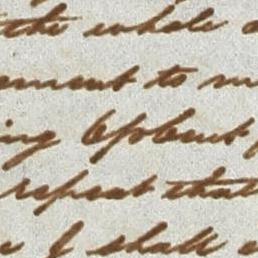 the whole
ement to m
ing
repeat that
I shall